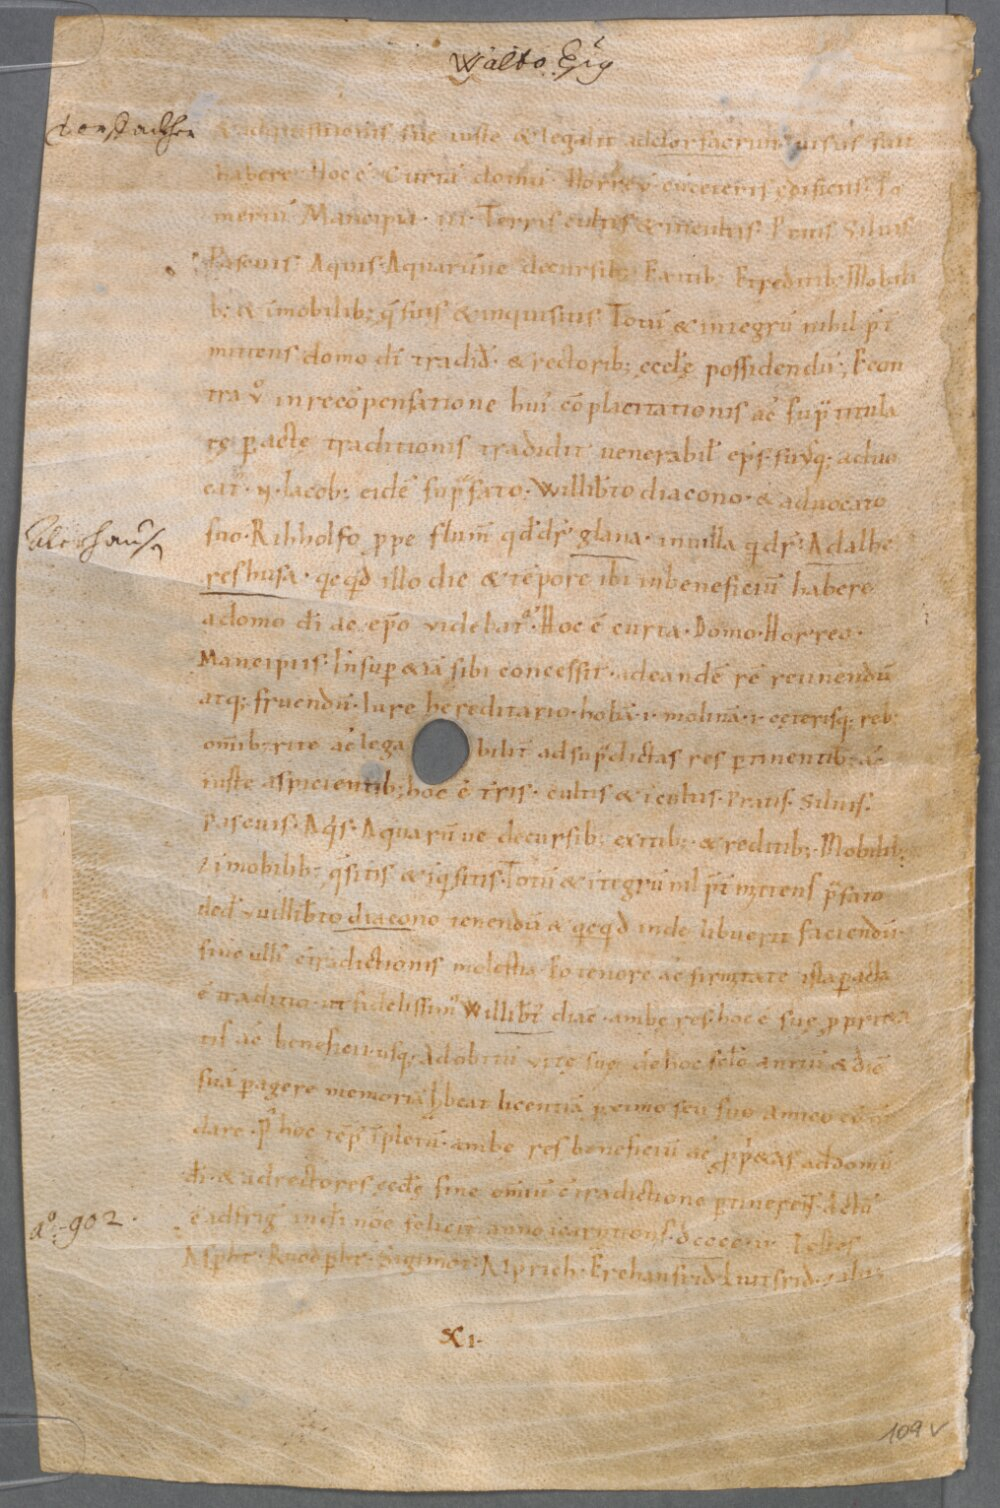 Walto Ep̄s
& adquisitionis sue iuste & legalit̄ ad dorfaerun uisus fuit
habere Hoc ē Curtā domū Horreū cū ceteris ędificiis Po
meriū Mancipia · III · Terris cultis & incultis Pratis Siluis
Pascuis Aquis Aquarūue decursib; Exitib; & reditib; Mobili
b; & īmobilib; q̄sitis & inquisitis Totū & integrū nihil p̄t
mittens domo dī tradid̄ · & rectorib; ęccłę possidendū; Econ
tra v̊ in recōpensatione hui' cōplacitationis ac̄ sup̄ titula
tę p̱actę traditionis tradidit uenerabił ep̄s suusq; aduo
cat' · N · Iacob; eidē sup̄fato · Willib̄to diacono · & aduocato
suo · Rihholfo ꝓpe flum̄ qd̄ dr̄ glana · in uilla q̄ dr̄ · Adalhe
reshusa · qcq̄d illo die & tēpore ibi in beneficiū habere
a domo dī ac ep̄o videbat' · Hoc ē curta · Domo · Horreo ·
Mancipiis · Insup̱ & iā sibi concessit · ad eandē rē retinendū
atq; fruendū · Iure hereditario · hobā · I · molinā · I · ceterisq; reb;
om̄ib; rite ac̄ lega bilit̄ ad sup̄dictas res p̱tinentib; ac̄
iuste aspicientib; hoc ē tr̄is · cultis & īcultis · Pratis · Siluis ·
Pascuis · Aq̄s · Aquarūue decursib; exitib; & reditib; · Mobilib;
īmobilib; q̄sitis & īq̄sitis · Totū & ītegrū nil p̄t mittens p̄fato
ded̄ vuillib̄to diacono tenendū & qcq̄d inde libuerit faciendū ·
sine ulli' c̄tradictionis molestia · Eo tenore ac̄ firmitate ista p̱acta
ē traditio · ut fidelissim' Willib̄t diac̄ · ambę res · hoc ē suę ꝓprieta
tis ac̄ beneficii usq; ad obitū vitę suę de hoc sc̄lo annū & diē
suā p̱agere memoriā habeat licentiā ꝓximo seu suo amico cō
dare · P' hoc tēp̄s īpletū · ambę res beneficiū ac̄ ꝓp̄etas ad domū
dī · & ad rectores ęccłę sine omiū c̄tradictione p̱tinere · Actū
ē ad frig̅ in dī nōe feliciter anno īcarnationis · DCCCC · II · Testes
Asp̱ht · Ruodp̱ht · Sigimot · Alprich · Erchanfrid · Liutfrid ·
XI ·
aō. 902.
109 v